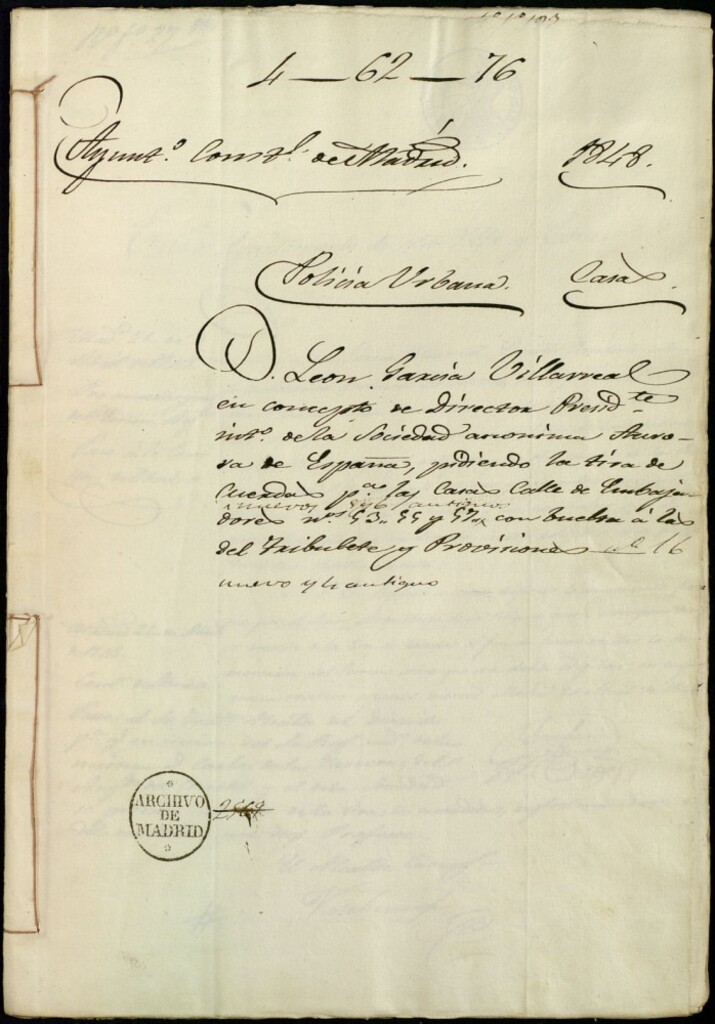 4-62-76
Ayunt.º Const.l de Madrid. 1848.
Policía Urbana. Casas.
D. Leon Garcia Villarreal
en concepto de Director Presid.te
int.º de la Sociedad anonima Auro-
ra de España, pidiendo la tira de
Cuerdas p.a las Casas Calle de Embaja-
nuevos y 6 antiguos
dores n.os 53, 55 y 57, con buelta á las
del Tribulete y Provisiones 16
nuevo y 4 antiguo
ARCHIVO
DE
MADRID